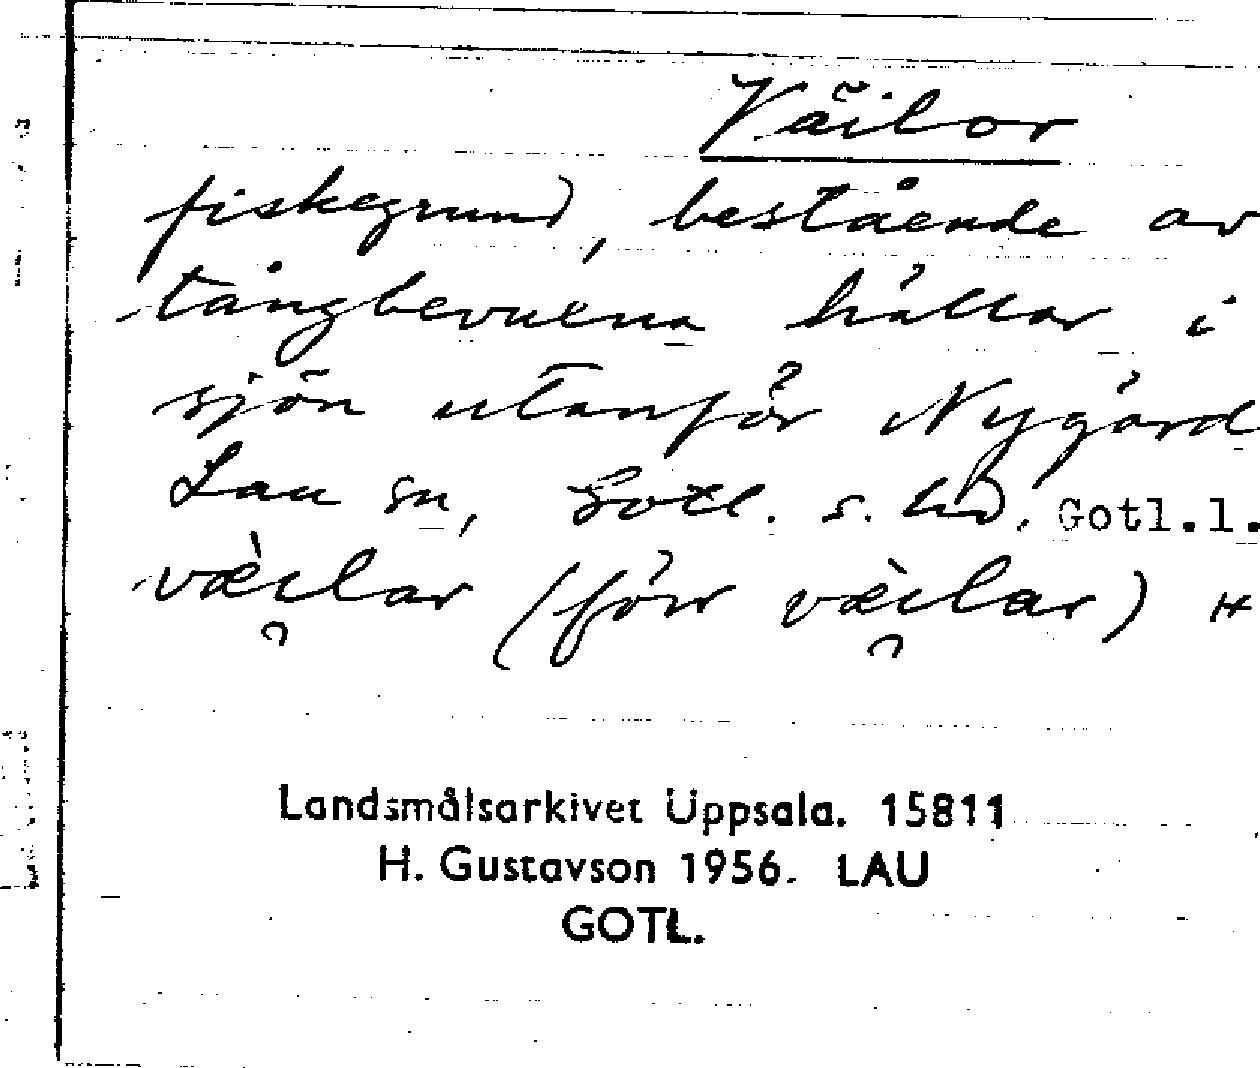 Väilor
fiskegrund, bestående av
tångbevuxna hällar i
sjön utanför Nygård
Lau sn, Gotl. s. hd. Gotl.l.
væ̀i̯lar (förr væ̀i̯lar) H
Landsmålsarkivet Uppsala. 15811
H. Gustavson 1956. LAU
GOTL.